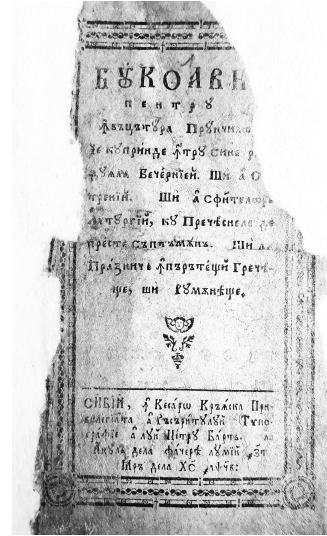 БꙊКОАВН
пентрꙋ
Ꙟвъцътꙋра Прꙋнчи
че кꙋпринде ꙟтрꙋ сине
Вечернїей. Ши а
тренїй. Ши а Сфинтелор
Латꙋргїй, кꙋ Пречѣснеле
престе съптъмѫнъ. Ши
Празниче ꙟпърътещй Грече
ще, ши Рꙋмѫнѣще.
СИБІЙ, ꙟ Кесаро Крѫяска При
вилегїита а Ръсъритꙋлꙋй Типо
графїе а лꙋй Петрꙋ Барт. ла
Анꙋл дела фачерѣ лꙋмїй
Ꙗр дела Хс҃